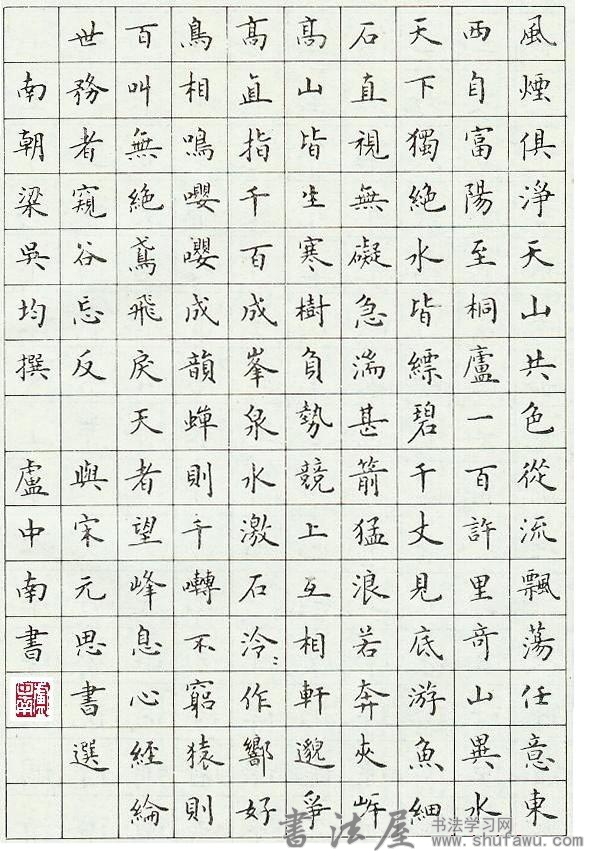 風煙俱淨天山共色從流飄蕩任意東
西自富陽至桐廬一百許里奇山異水
天下獨絕水皆縹碧千丈見底游魚細
石直視無礙急湍甚箭猛浪若奔夾岸
髙山皆生寒樹負勢競上互相軒邈爭
髙直指千百成峯泉水激石泠〻作響好
鳥相鳴嚶嚶成韻蟬則千囀不窮猿則
百叫無絕鳶飛戾天者望峰息心經綸
世務者窺谷忘反 與宋元思書選
南朝梁吳均撰 盧中南書
盧中南
書法屋
书法学习网
www.shufawu.com